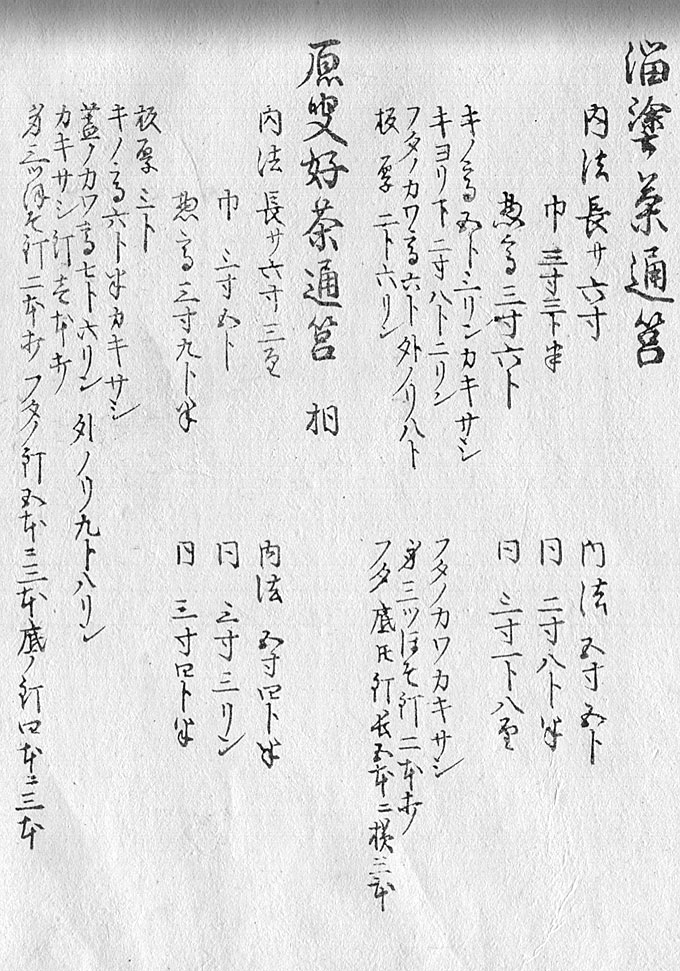 溜塗茶通筥
内法 長サ六寸
巾 三寸三卜半
惣高 三寸六卜
キノ高五卜三リンカキサシ
キヨリ下二寸八卜二リン
フタノカワ高六卜外ノリ八卜
板厚 二卜六リン
内法 五寸五卜
同 二寸八卜半
同 三寸一卜八
フタノカワカキサシ
身三ツほそ釘二本
フタ底氏釘長五本ニ横三本
原叟好茶通筥 桐
内法 長サ六寸三
巾 三寸五卜
惣高 三寸九卜半
板厚 三卜
キノ高六卜半カキサシ
蓋ノカワ高七卜六リン 外ノリ九卜八リン
カキサシ釘壱本
身三ツほそ釘二本 フタノ釘五本ニ三本底ノ釘四本ニ三本
内法 五寸四卜半
同 三寸三リン
同 三寸四卜半